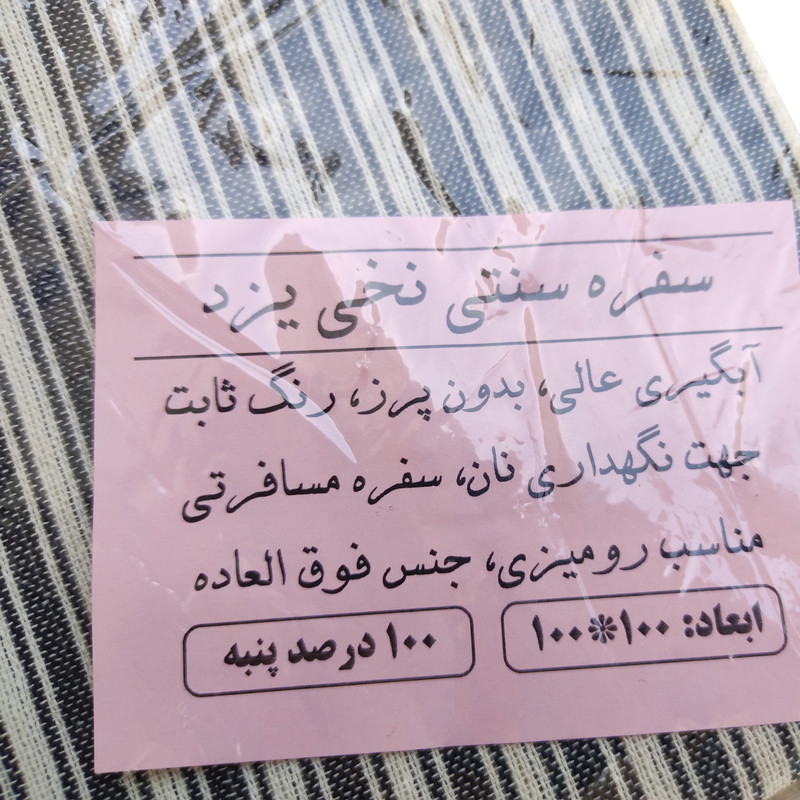 سفره سنتی نخی یزد
آبگیری عالی، بدون پرز، رنگ ثابت
جهت نگهداری نان، سفره مسافرتی
مناسب رومیزی، جنس فوق العاده
ابعاد: ۱۰۰*۱۰۰
۱۰۰ درصد پنبه